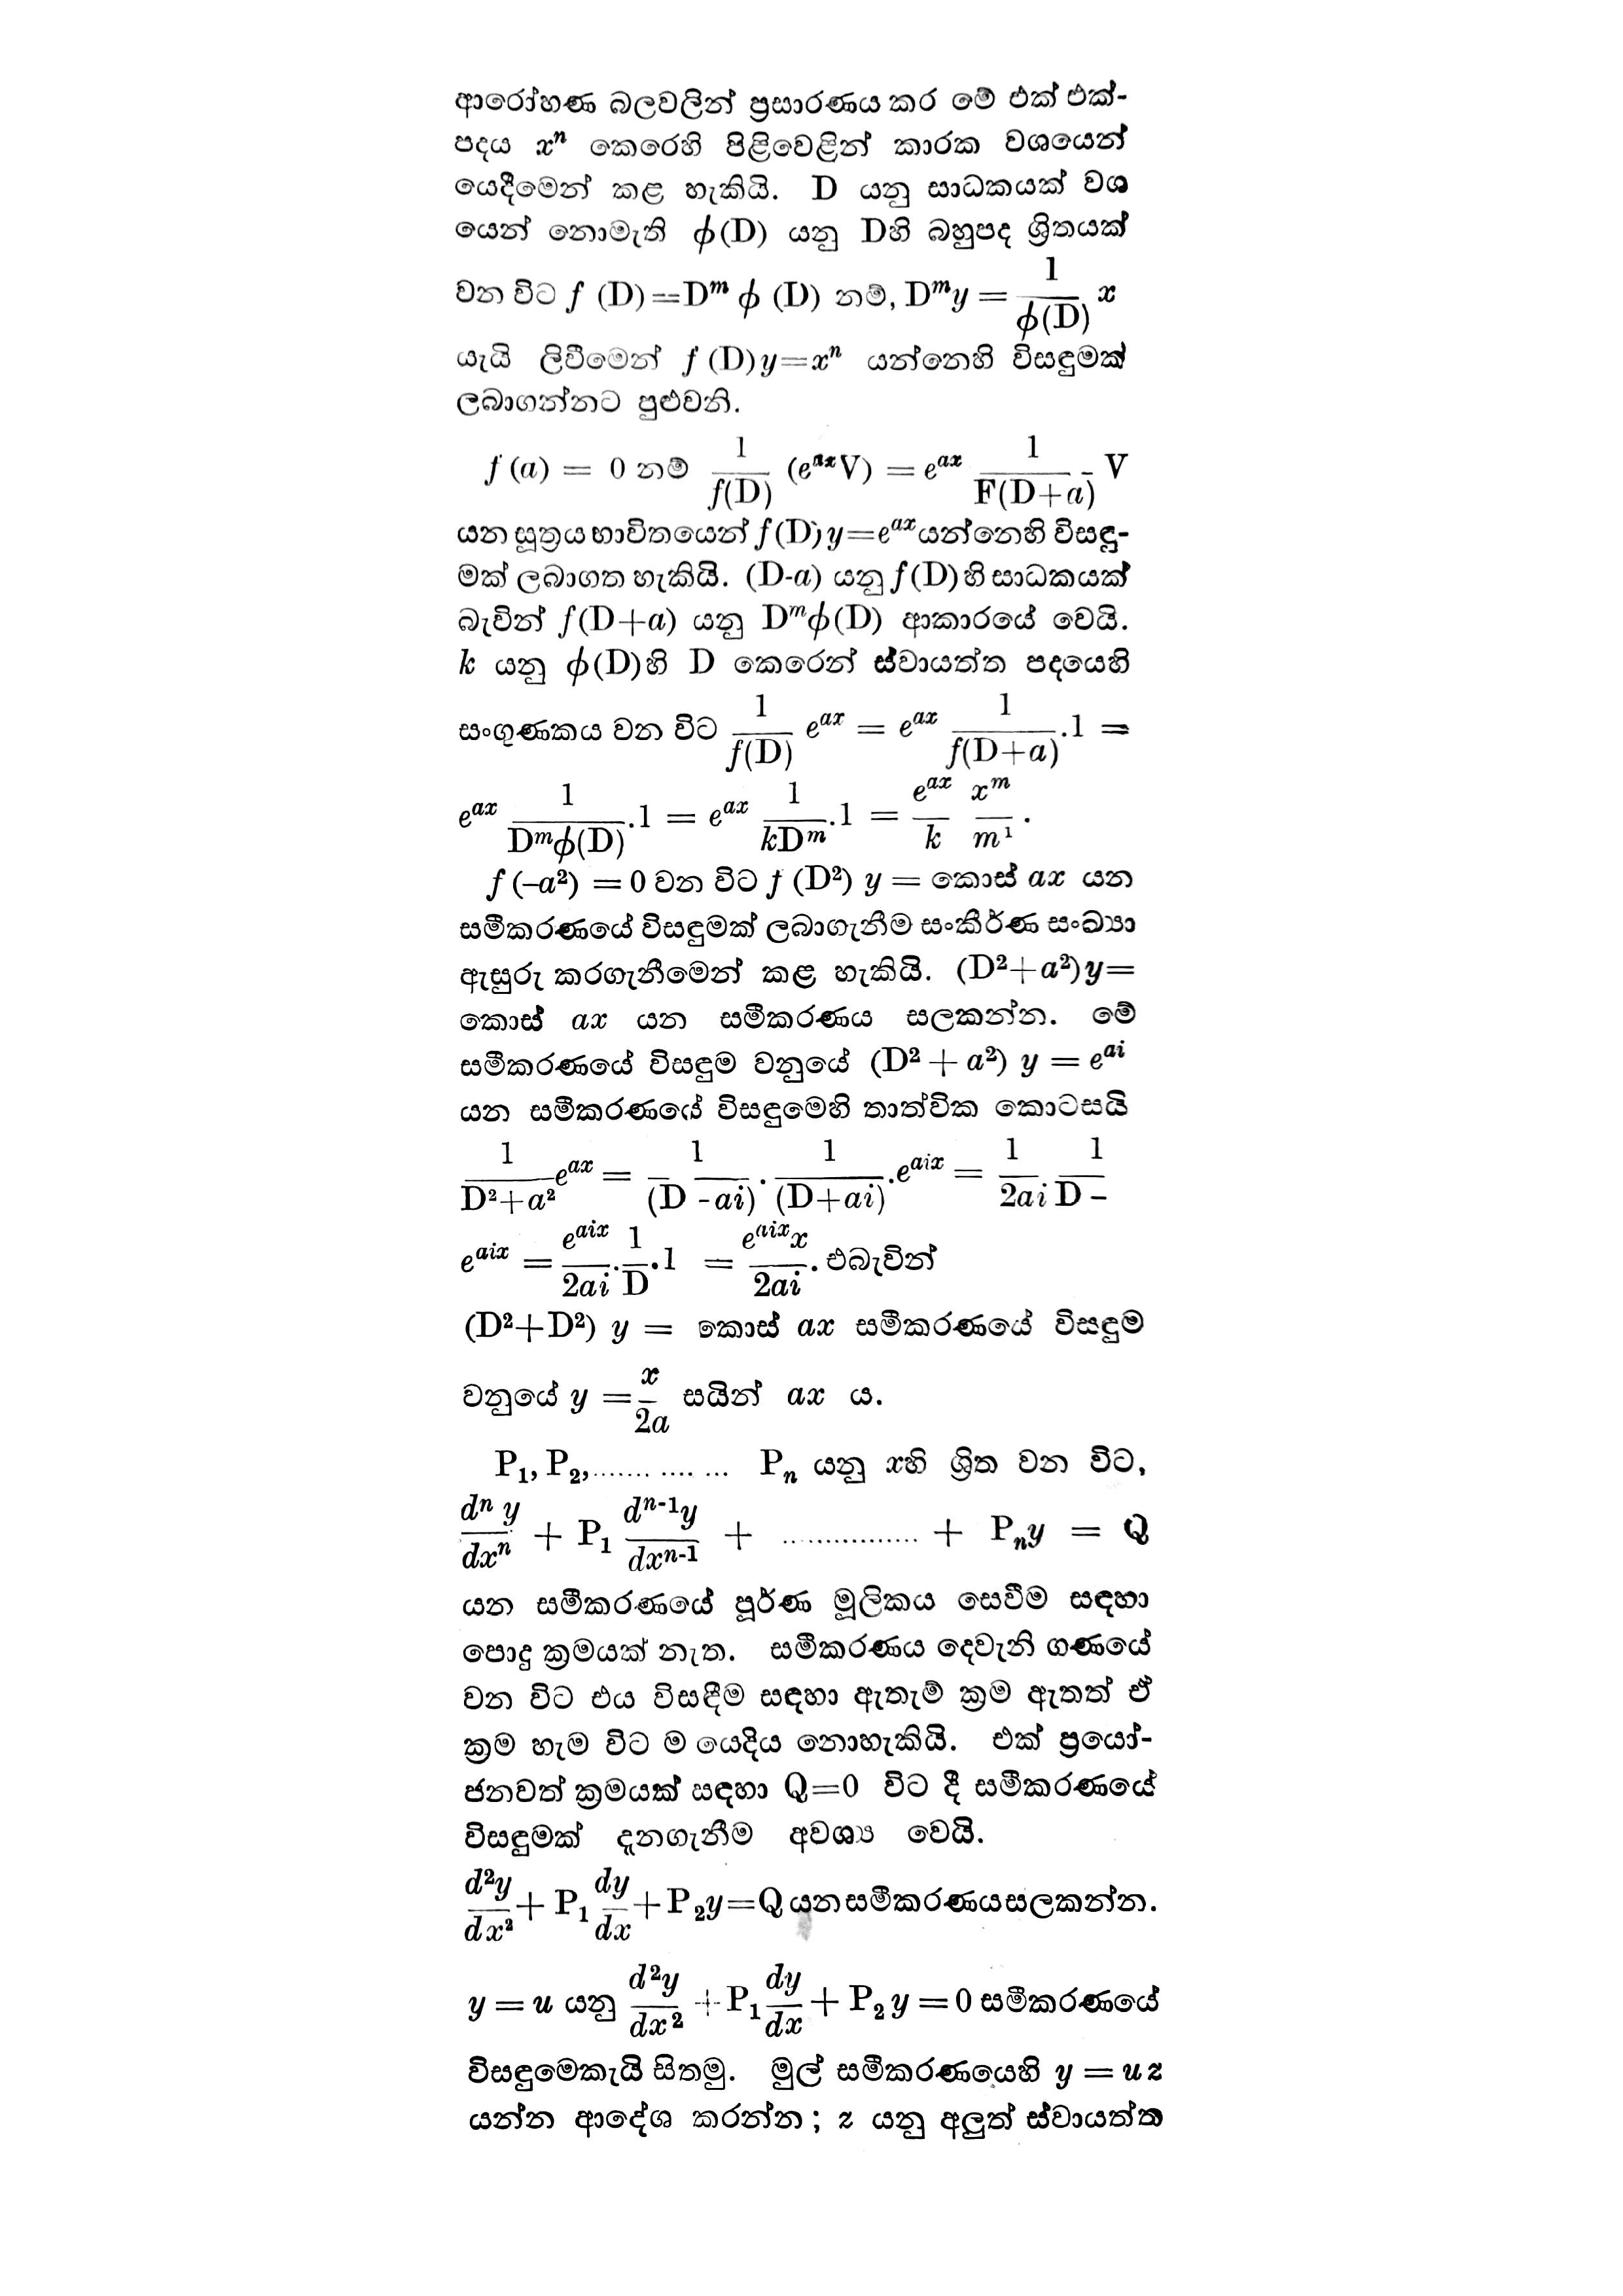 ආරෝහණ බලවලින් ප්‍රසාරණය කර මේ එක් එක්-
පදය xⁿ කෙරෙහි පිළිවෙළින් කාරක වශයෙන්
යෙදීමෙන් කළ හැකියි. D යනු සාධකයක් වශ
යෙන් නොමැති ϕ(D) යනු Dහි බහුපද ශ්‍රිතයක්
වන විට f (D)=Dᵐ ϕ (D) නම්, Dᵐy = 1/ϕ(D) x
යැයි ලිවීමෙන් f (D)y=xⁿ යන්නෙහි විසඳුමක්
ලබාගන්නට පුළුවනි.
f (a) = 0 නම් 1/f(D) (eᵃˣV) = eᵃˣ 1/F(D+a) V
යන සූත්‍රය භාවිතයෙන් f(D)y=eᵃˣ යන්නෙහි විසඳු-
මක් ලබාගත හැකියි. (D-a) යනු f(D)හි සාධකයක්
බැවින් f(D+a) යනු Dᵐϕ(D) ආකාරයේ වෙයි.
k යනු ϕ(D)හි D කෙරෙන් ස්වායත්ත පදයෙහි
සංගුණකය වන විට 1/f(D) eᵃˣ = eᵃˣ 1/f(D+a).1 =
eᵃˣ 1/Dᵐϕ(D).1 = eᵃˣ 1/kDᵐ.1 = eᵃˣ/k xᵐ/m¹.
f (–a²) = 0 වන විට f (D²) y = කොස් ax යන
සමීකරණයේ විසඳුමක් ලබාගැනීම සංකීර්ණ සංඛ්‍යා
ඇසුරු කරගැනීමෙන් කළ හැකියි. (D²+a²)y=
කොස් ax යන සමීකරණය සලකන්න. මේ
සමීකරණයේ විසඳුම වනුයේ (D² + a²) y = eᵃⁱ
යන සමීකරණයේ විසඳුමෙහි තාත්වික කොටසයි
1/D²+a² eᵃˣ = 1/(D -ai) . 1/(D+ai) .eᵃⁱˣ = 1/2ai 1/D –
eᵃⁱˣ = eᵃⁱˣ/2ai . 1/D .1 = eᵃⁱˣx/2ai . එබැවින්
(D²+D²) y = කොස් ax සමීකරණයේ විසඳුම
වනුයේ y = x/2a සයින් ax ය.
P₁, P₂,....... .... ... Pₙ යනු xහි ශ්‍රිත වන විට,
dⁿ y/dxⁿ + P₁ dⁿ⁻¹y/dxⁿ⁻¹ + ................ + Pₙy = Q
යන සමීකරණයේ පූර්ණ මූලිකය සෙවීම සඳහා
පොදු ක්‍රමයක් නැත. සමීකරණය දෙවැනි ගණයේ
වන විට එය විසඳීම සඳහා ඇතැම් ක්‍රම ඇතත් ඒ
ක්‍රම හැම විට ම යෙදිය නොහැකියි. එක් ප්‍රයෝ-
ජනවත් ක්‍රමයක් සඳහා Q=0 විට දී සමීකරණයේ
විසඳුමක් දැනගැනීම අවශ්‍ය වෙයි.
d²y/dx² + P₁ dy/dx + P₂y=Q යන සමීකරණය සලකන්න.
y = u යනු d²y/dx² + P₁ dy/dx + P₂ y = 0 සමීකරණයේ
විසඳුමෙකැයි සිතමු. මුල් සමීකරණයෙහි y = uz
යන්න ආදේශ කරන්න ; z යනු අලුත් ස්වායත්ත